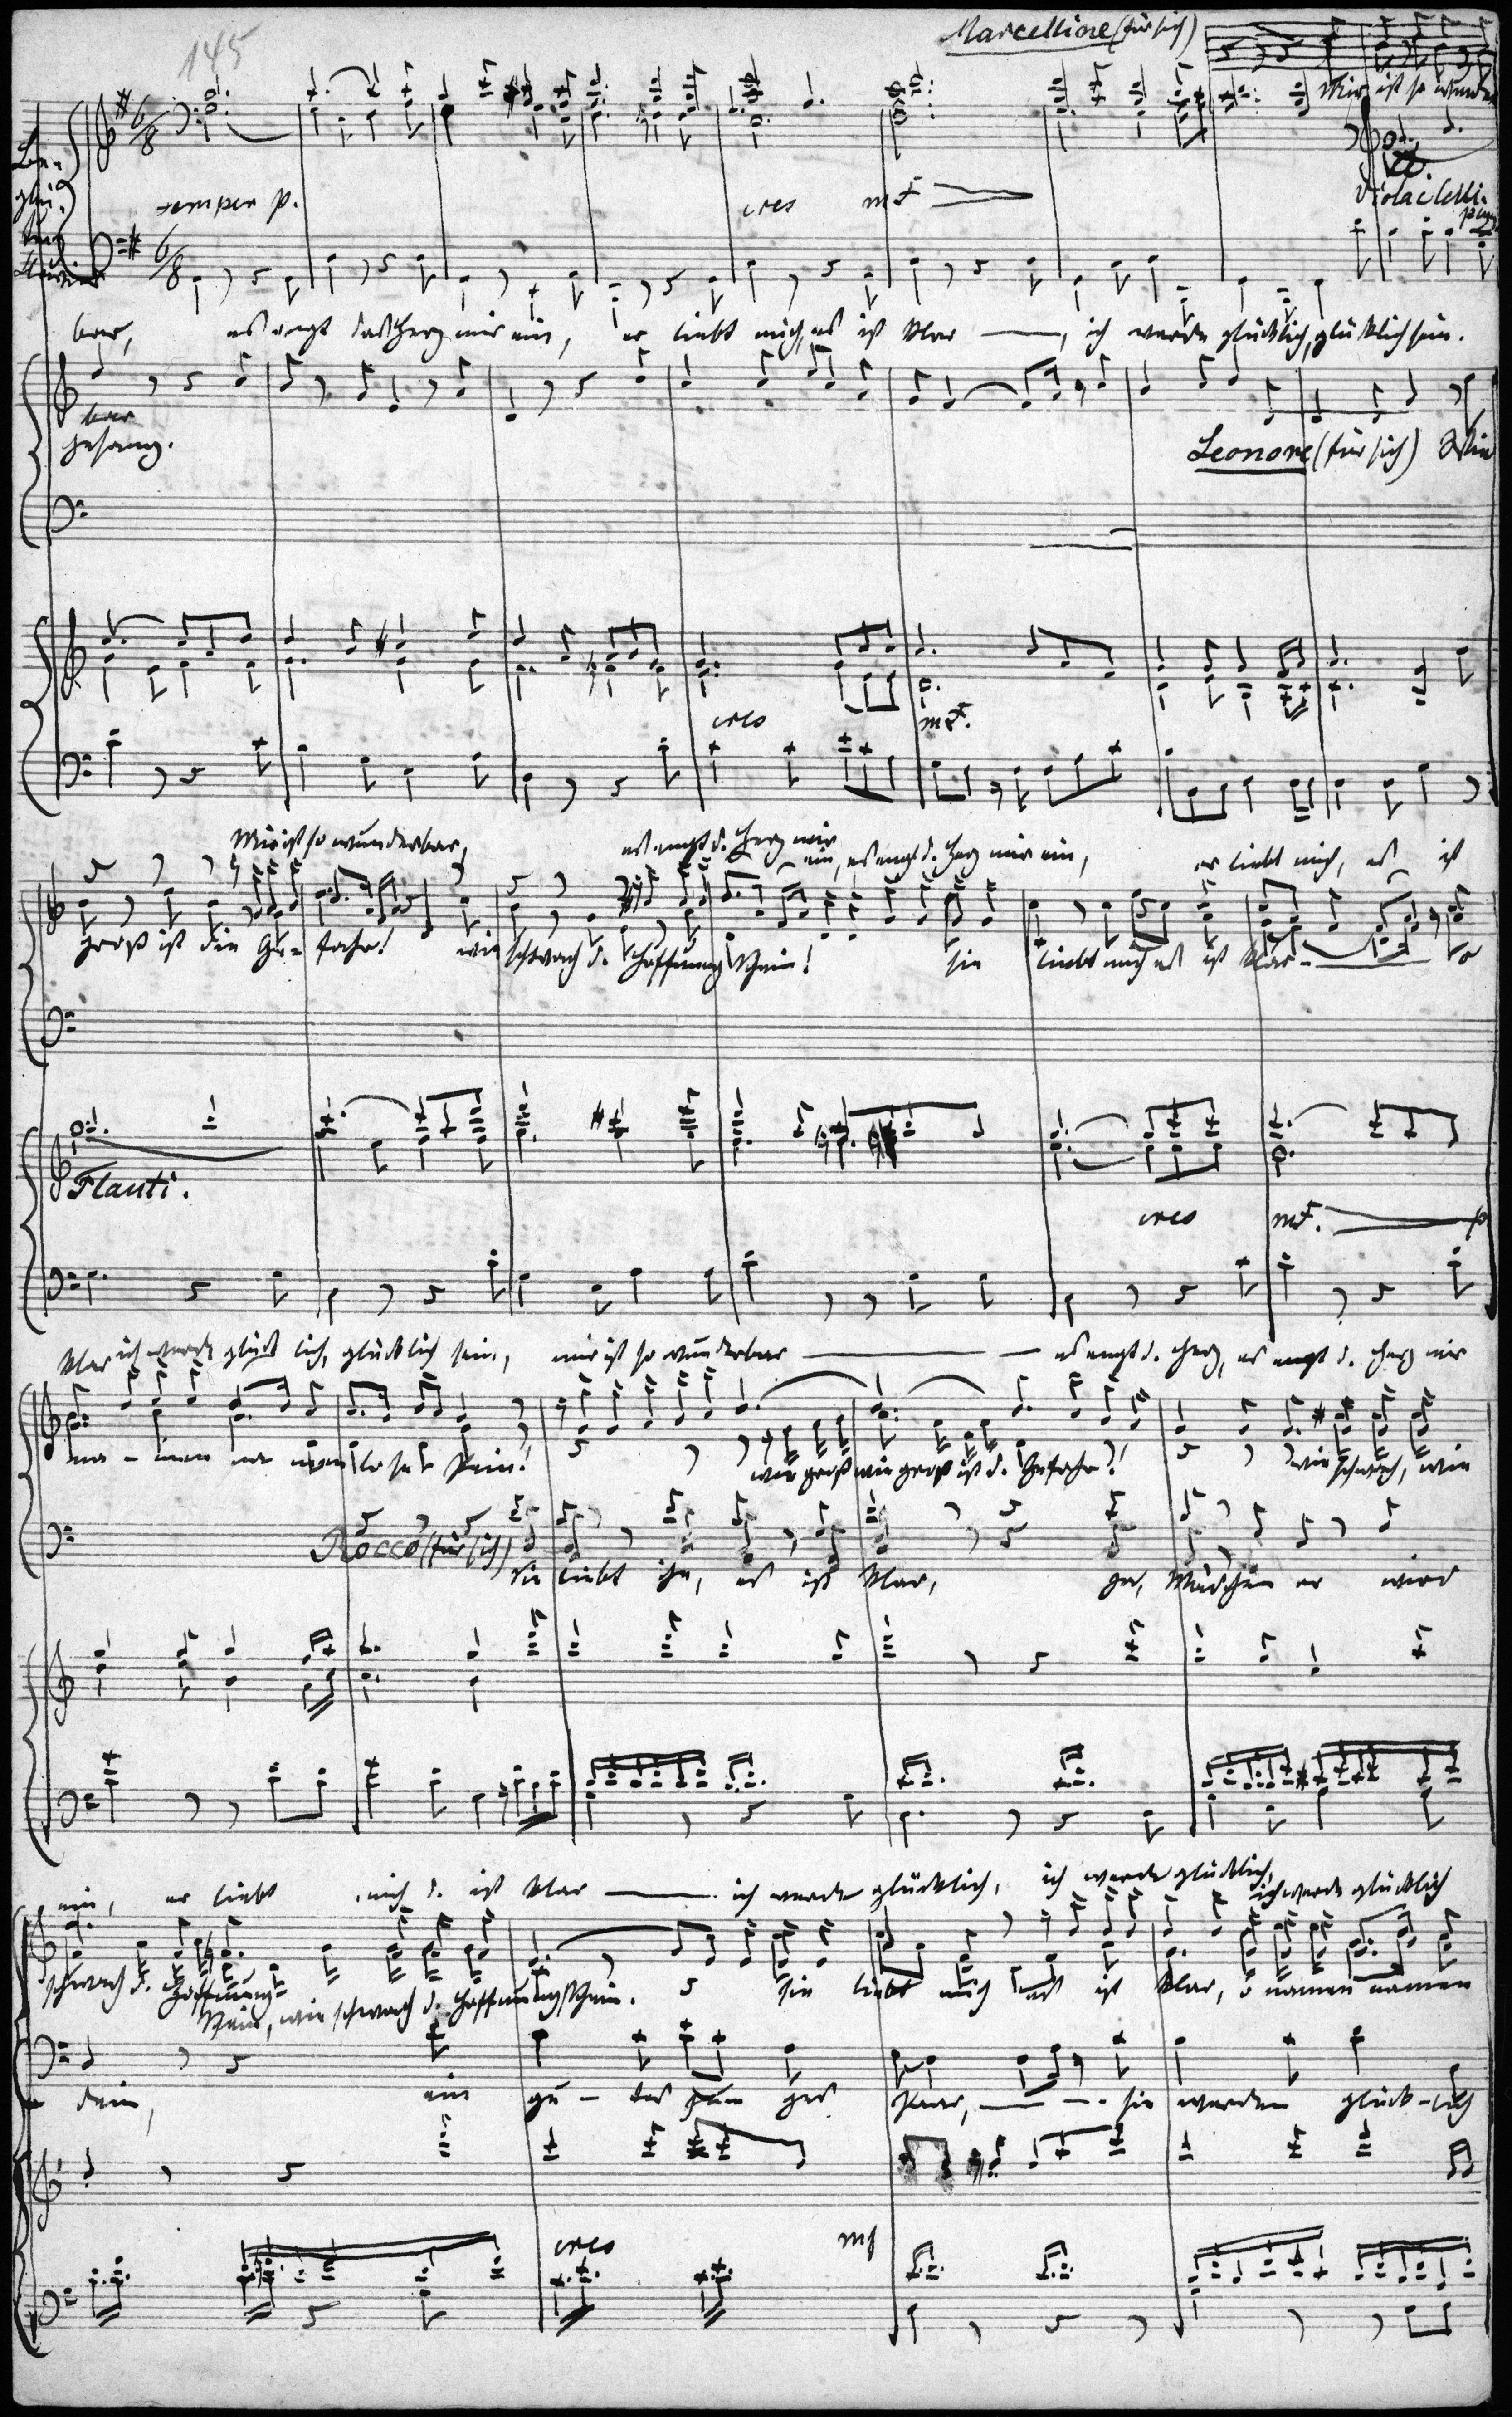 145
Marcelline (für sich)
Mir ist so wunder
semper p.
cres mf
Viola Celli.
bar, es engt das Herz mir ein, er liebt mich, es ist klar, ich werde glücklich, glücklich sein.
bar
Gesang.
Leonore (für sich) Wie
cres mf.
Mir ist so wunderbar, es engt d. Herz mir
ein, es engt d. Herz mir ein, er liebt mich, es ist
groß ist die Ge- fahr! wie schwach d. Hoffnung Schein! sie liebt mich es ist klar- o
Flauti.
cres mf. p
klar ich werde glück lich, glücklich sein, mir ist so wunderbar es engt d. Herz, es engt d. Herz mir
na- men na men lo se Pein! wie groß wie groß ist d. Gefahr! wie schwach, wie
Rocco (für sich) Sie liebt ihn, es ist klar, ja, Mädchen er wird
ein, er liebt mich d. ist klar ich werde glücklich, ich werde glücklich,
ich werde glücklich
schwach d. Hoffnung
Schein, wie schwach d. Hoffnung Schein. sie liebt mich es ist klar, o namen namen
dein, ein gu- tes jun ges Paar, sie werden glück-lich
cres mf